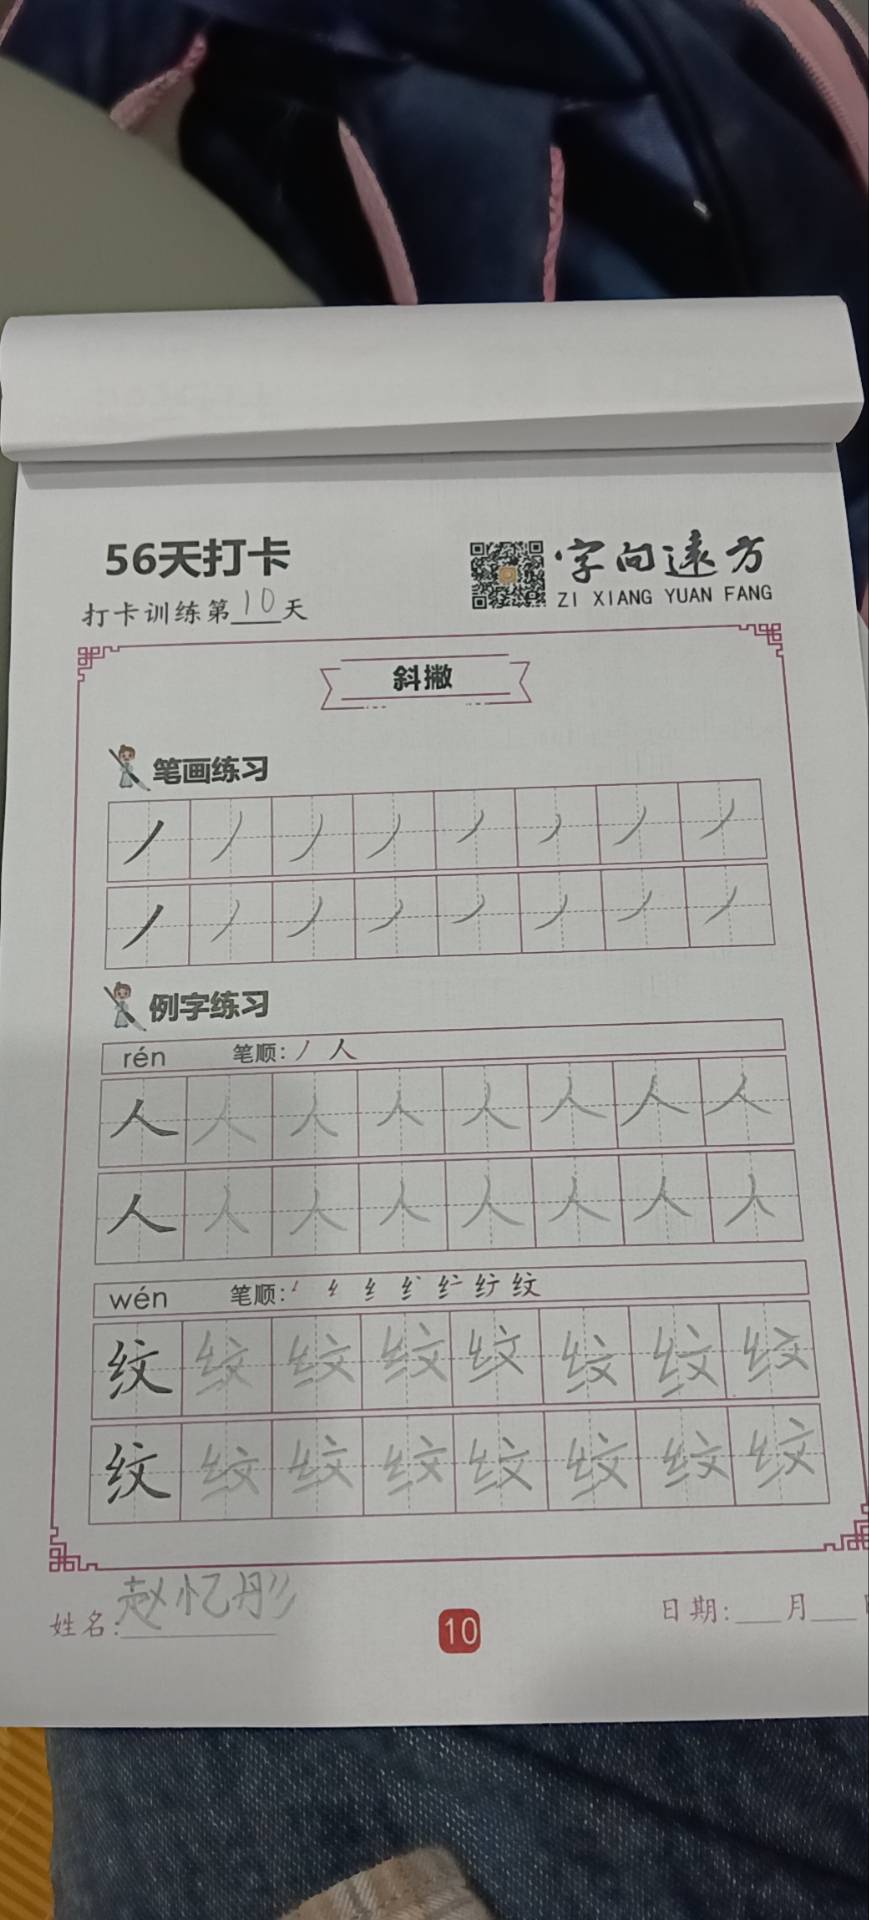 56天打卡
字向遠方
ZI XIANG YUAN FANG
打卡训练第10天
斜撇
笔画练习
丿 丿 丿 丿 丿 丿 丿 丿
丿 丿 丿 丿 丿 丿 丿 丿
例字练习
rén 笔顺: 丿 人
人 人 人 人 人 人 人 人
人 人 人 人 人 人 人 人
wén 笔顺: 纹
纹 纹 纹 纹 纹 纹 纹 纹
纹 纹 纹 纹 纹 纹 纹 纹
姓名: 赵忆彤
10
日期: 月